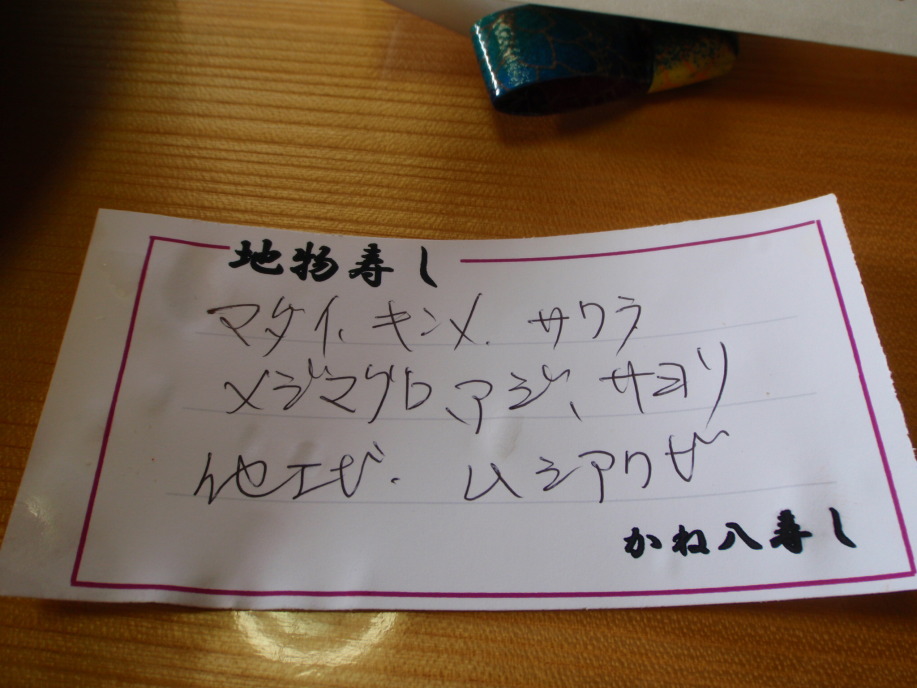 地物寿し
マダイ、キンメ、サワラ
メジマグロ、アジ、サヨリ
地エビ、ムシアワビ
かね八寿し